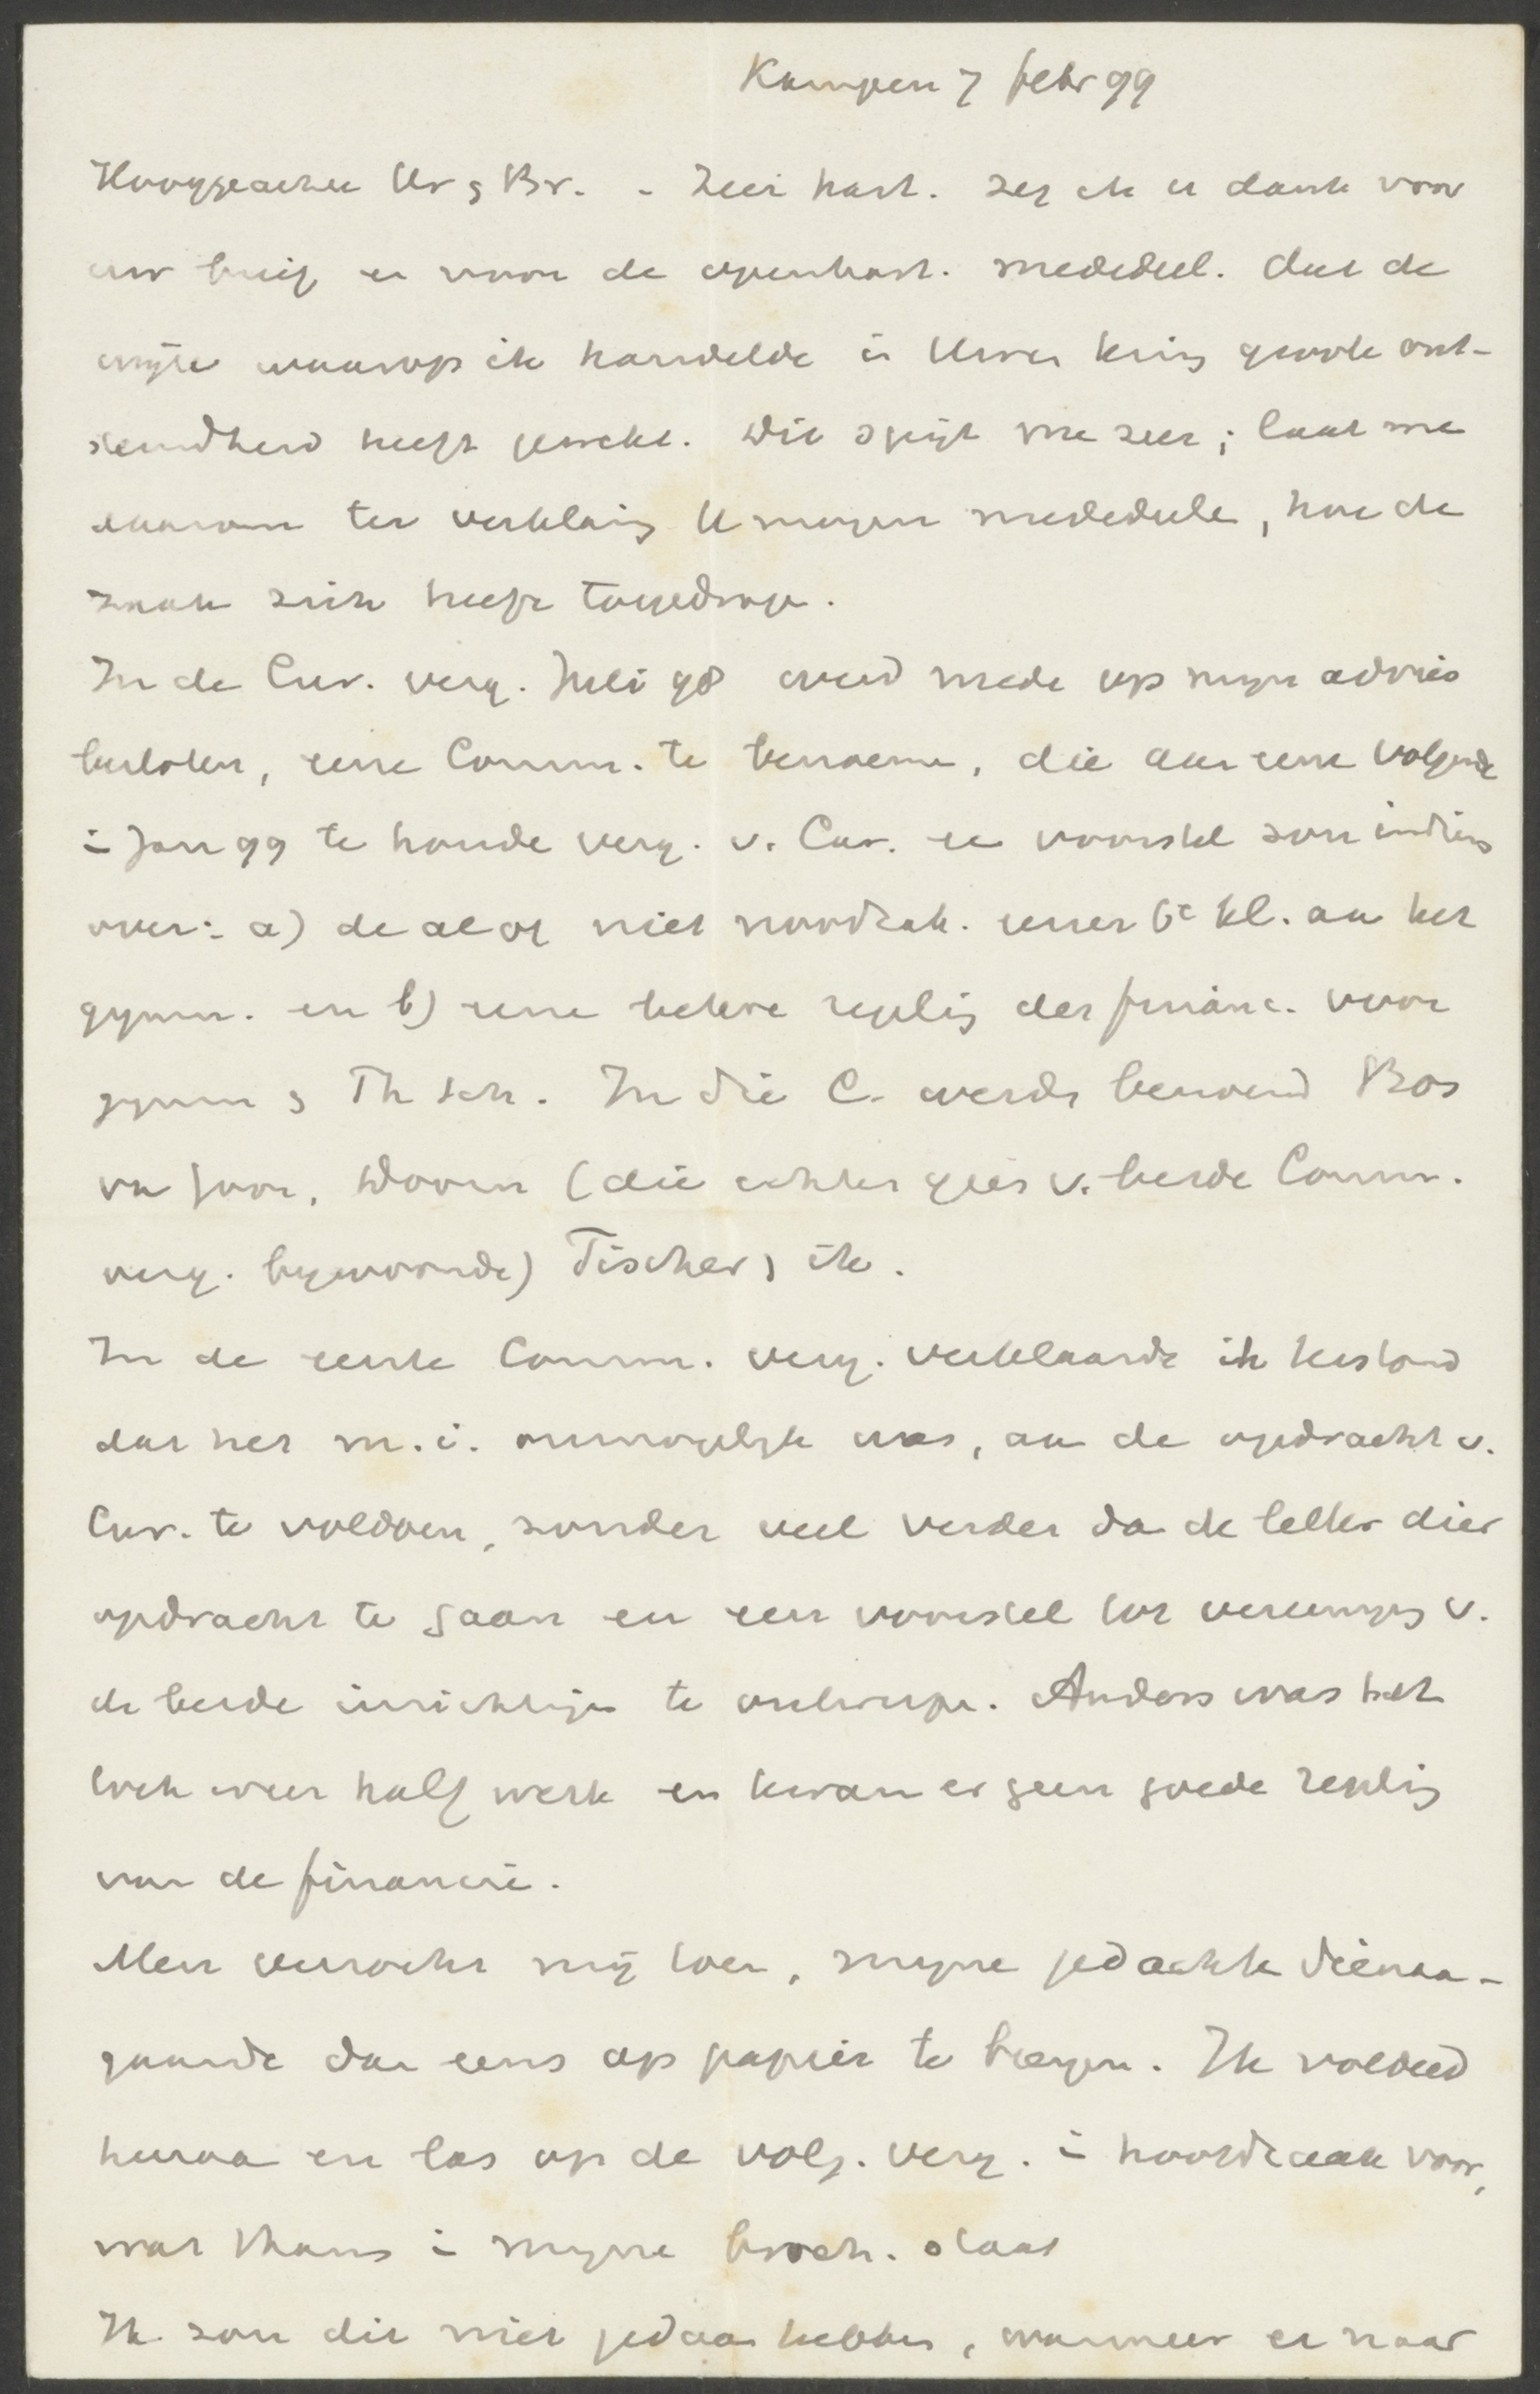 Kampen 7 febr 99
Hooggeachte Hr & Br. - Zeer hart. zeg ik u dank voor
uw brief en voor de openhart. mededeel. dat de
wijze waarop ik handelde in Uwen kring groote ont-
stemdheid heeft gewekt. Dit spijt me zeer; laat me
daarom ter verklaring U mogen mededeele, hoe de
zaak zich heeft toegedrage.
In de Cur. verg. Juli 98 werd mede op mijn advies
besloten, eene Comm. te benoeme, die aan eene volgende
in Jan 99 te houde verg. v. Cur. ee voorstel zou indien
over: a) de al of niet noodzak. eener 6e kl. aan het
gymn. en b) eene betere regelig der financ. voor
gymn & Th Sch. In die C. werde benoemd Bos
van Joon, Doorn (die echter geen v. beide Comm.
verg. bijwoonde) Tischer & ik.
In de eerste Comm. verg. verklaarde ik terstond
dat het m.i. onmogelijk was, aan de opdracht v.
Cur. te voldoen, zonder veel verder dan de letter dier
opdracht te gaan en een voorstel tot vereenigig v.
de beide inrichtige te ontwerpe. Anders was het
toch weer half werk en kwam er geen goede regelig
van de financië.
Men verzocht mij toen, mijne gedachte diënaa-
gaande dan eens op papier te brengen. Ik voldeed
hieraa en las op de volg. verg. in hoofdzaak voor,
wat thans in mijne broch. staat
Ik zou dit niet gedaan hebben, wanneer er naar